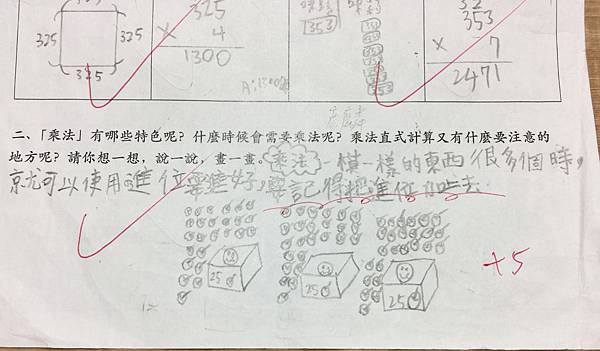 325
× 4
1300
325
325
325
A:1300
353
353
× 7
2471
二、「乘法」有哪些特色呢? 什麼時候會需要乘法呢? 乘法直式計算又有什麼要注意的
地方呢? 請你想一想,說一說,畫一畫。乘法一樣一樣的東西很多個時,
就可以使用進位要進好,要記得把進位加進去
25
25
25
+5